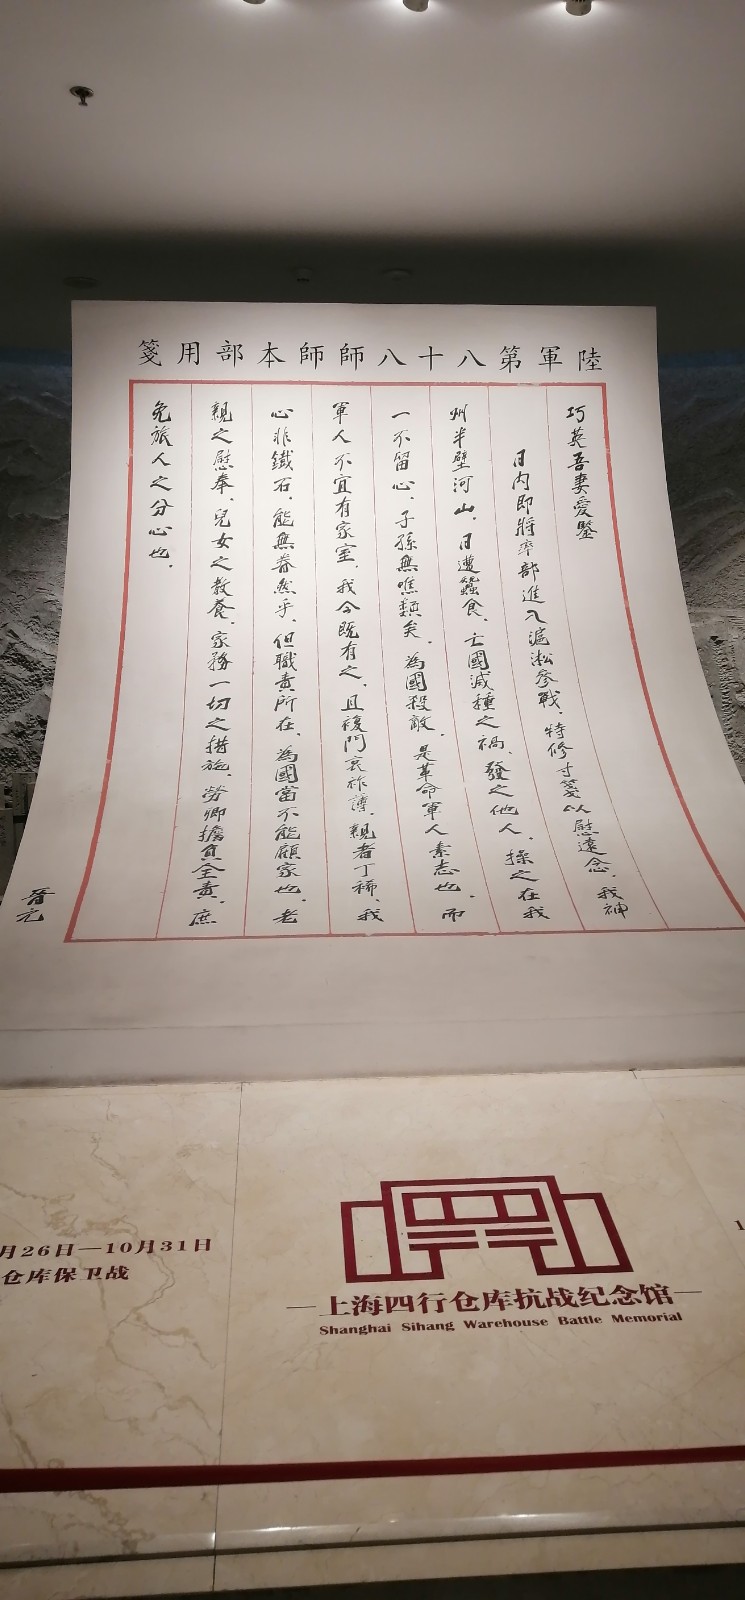 陸軍第八十八師師本部用箋
巧英吾妻愛鑒
日内即將率部進入滬淞參戰，特修寸箋以慰遠念，我神
州半壁河山，日遭蠶食，亡國滅種之禍，發之他人，操之在我
一不留心，子孫無噍類矣，為國殺敵，是革命軍人素志也，而
軍人不宜有家室，我今既有之，且複門衰祚薄，親者丁稀，我
心非鐵石，能無眷然乎，但職責所在，為國當不能顧家也，老
親之慰奉，兒女之教養，家務一切之措施，勞卿擔負全責，庶
免旅人之分心也．
晉元
月26日—10月31日
仓库保卫战
上海四行仓库抗战纪念馆
Shanghai Sihang Warehouse Battle Memorial
1